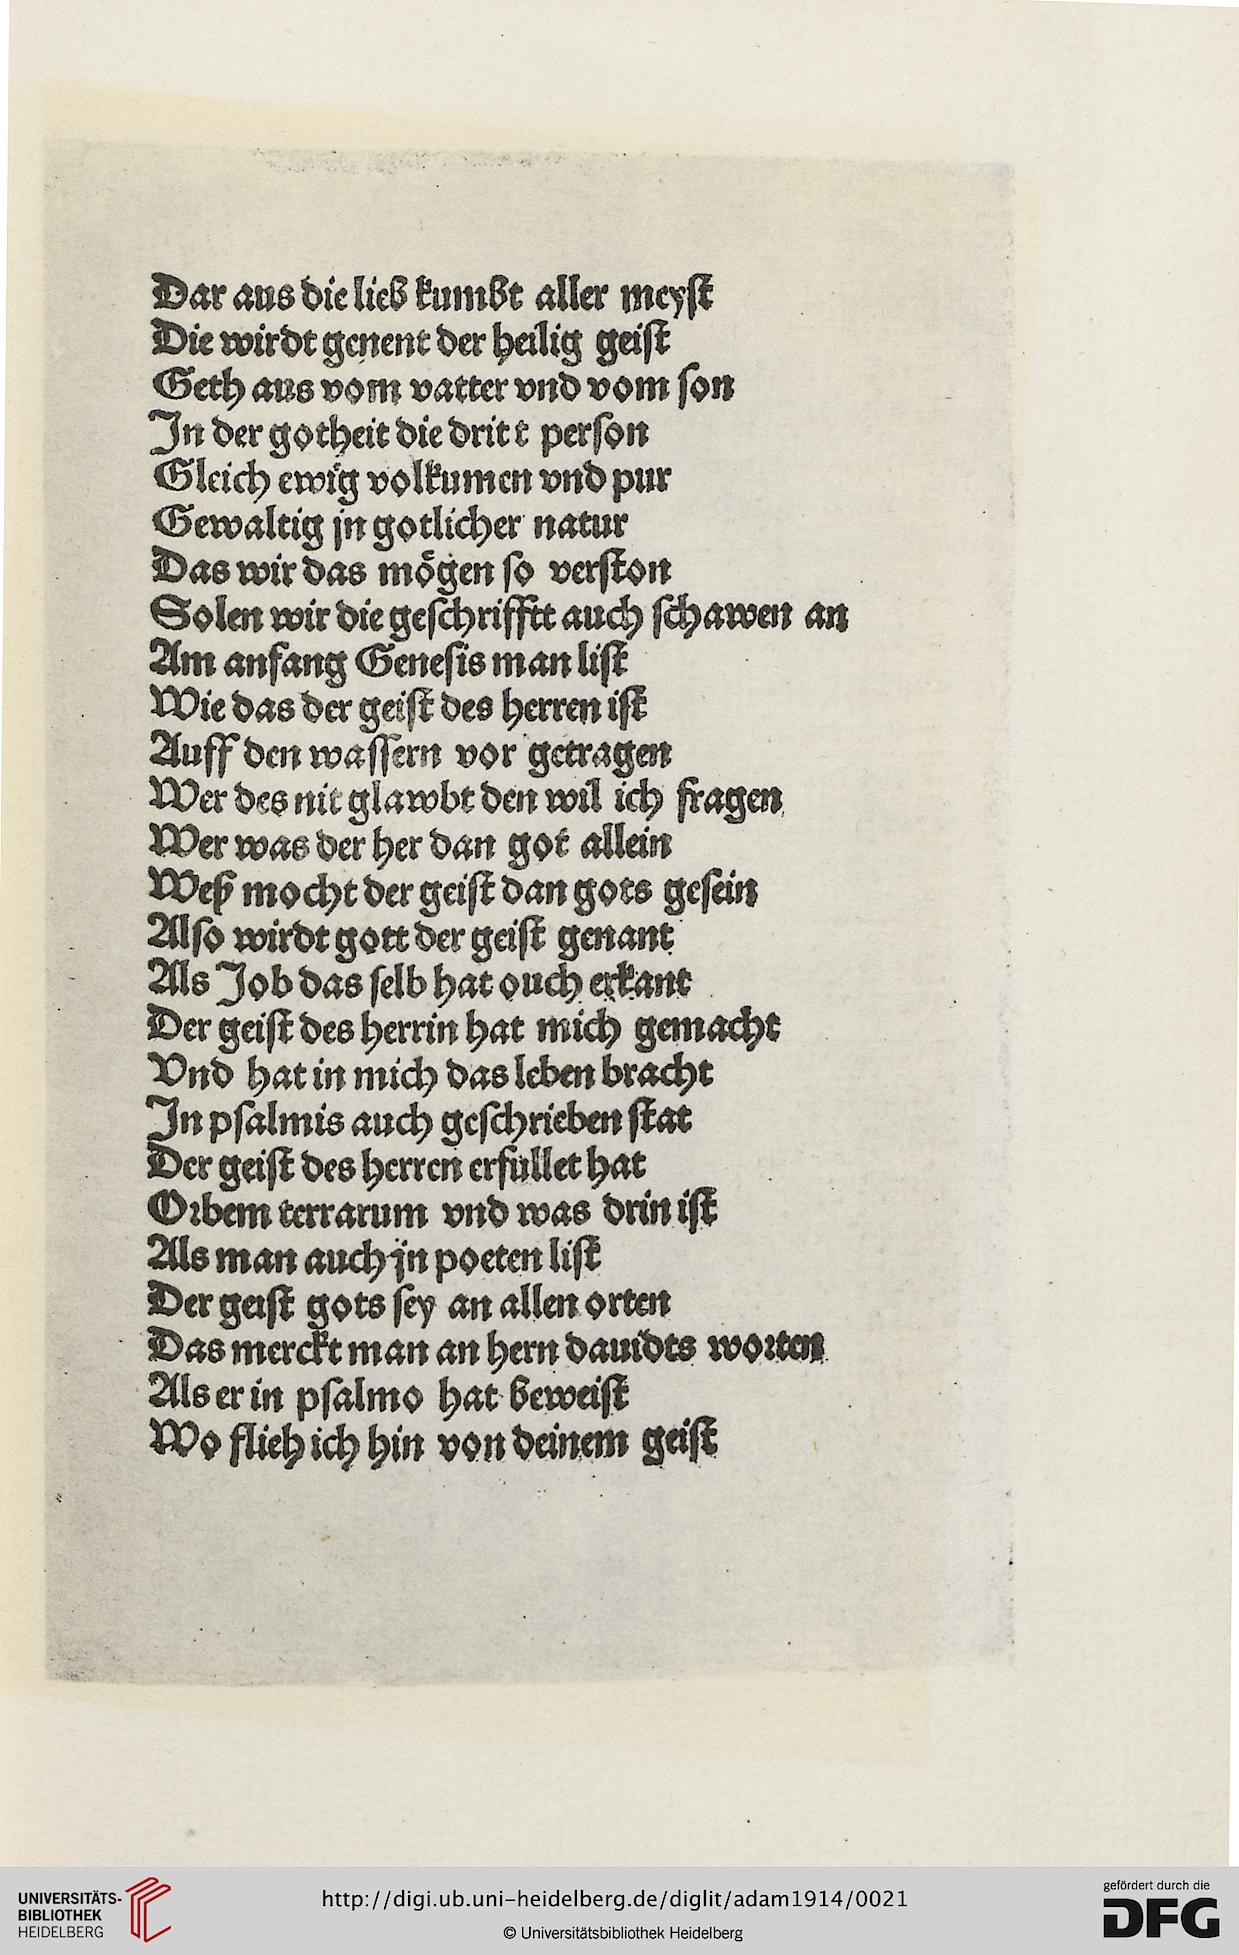 Dar aus die lieb kumbt aller meyst
Die wirdt genent der heilig geist
Geth aus vom vatter vnd vom son
In der gotheit die dritt person
Gleich ewig volkumen vnd pur
Gewaltig jn gotlicher natur
Das wir das mögen so verston
Solen wir die geschrifftt auch schawen an
Am anfang Genesis man list
Wie das der geist des herren ist
Auff den wassern vor getragen
Wer des nit glawbt den wil ich fragen
Wer was der her dan got allein
Weß mocht der geist dan gots gesein
Also wirdt gott der geist genant
Als Job das selb hat ouch erkant
Der geist des herrin hat mich gemacht
Vnd hat in mich das leben bracht
In psalmis auch geschrieben stat
Der geist des herren erfullet hat
Orbem terrarum vnd was drin ist
Als man auch jn poeten list
Der geist gots sey an allen orten
Das merckt man an hern dauidts worten
Als er in psalmo hat beweist
Wo flieh ich hin von deinem geist
UNIVERSITÄTS-
BIBLIOTHEK
HEIDELBERG
http://digi.ub.uni-heidelberg.de/diglit/adam1914/0021
© Universitätsbibliothek Heidelberg
gefördert durch die
DFG